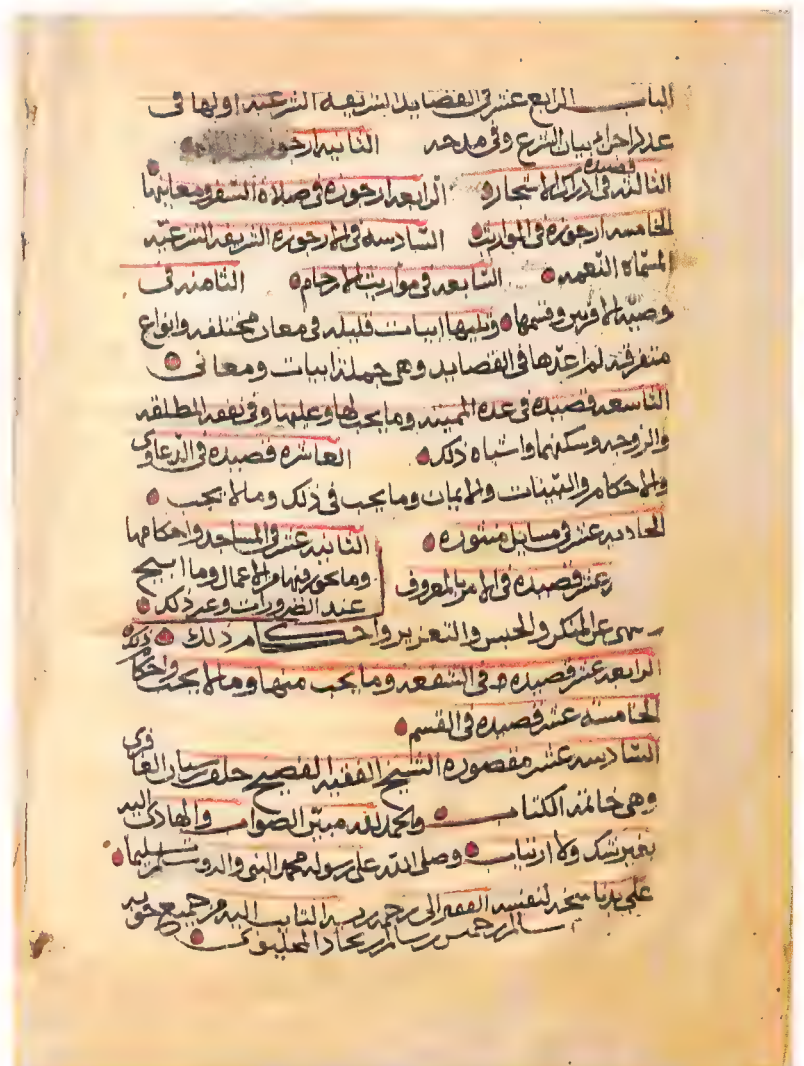 الباب الرابع عشر في القصايد الشريفه الشرعيه اولها في
عدد اجزاء بيان الشرع وفي مدحه الثانيه ارجوزه
الثالثه قصيده في ادراك الاشجار الرابعه ارجوزه في صلاة السفر ومعانيها
الخامسه ارجوزه في المواريث السادسه في الارجوزه الشريفه الشرعيه
المسماه النعمه السابعه في مواريث الارحام الثامنه في
وصيه الاقربين وقسمها وتليها ابيات قليله في معان مختلفه وانواع
متفرقه لم اعدها في القصايد وهي جملة ابيات ومعاني
التاسعه قصيده في عدة المميته وما يجب لها وعليها وفي نفقه المطلقه
والزوجه وسكنهما واشباه ذلك العاشره قصيده في الدعاوي
والاحكام والبينات والايمان وما يجب في ذلك وما لا يجب
الحاديه عشر في مسايل منثوره الثانيه عشر في المساجد واحكامها
وما يجوز فيها من الاعمال وما ابيح
عند الضرورات وغير ذلك
عشر قصيده في الامر بالمعروف
عن المنكر والحبس والتعزير واحكام ذلك
الرابعه عشر قصيده في الشفعه وما يجب منها وما لا يجب واحكام ذلك
الخامسه عشر قصيده في القسم
السادسه عشر مقصورة الشيخ الفقيه الفصيح خلف بن سنان الغافري
وهي خاتمة الكتاب والحمد لله مبين الصواب والهادي اليه
بغير شك ولا ارتياب وصلى الله على رسوله محمد النبي واله وسلم تسليما
على يد ناسخه لنفسه الفقير الى رحمة ربه التايب اليه من جميع حوبه
سالم بن خميس بن سالم بن نجاد المحليوي